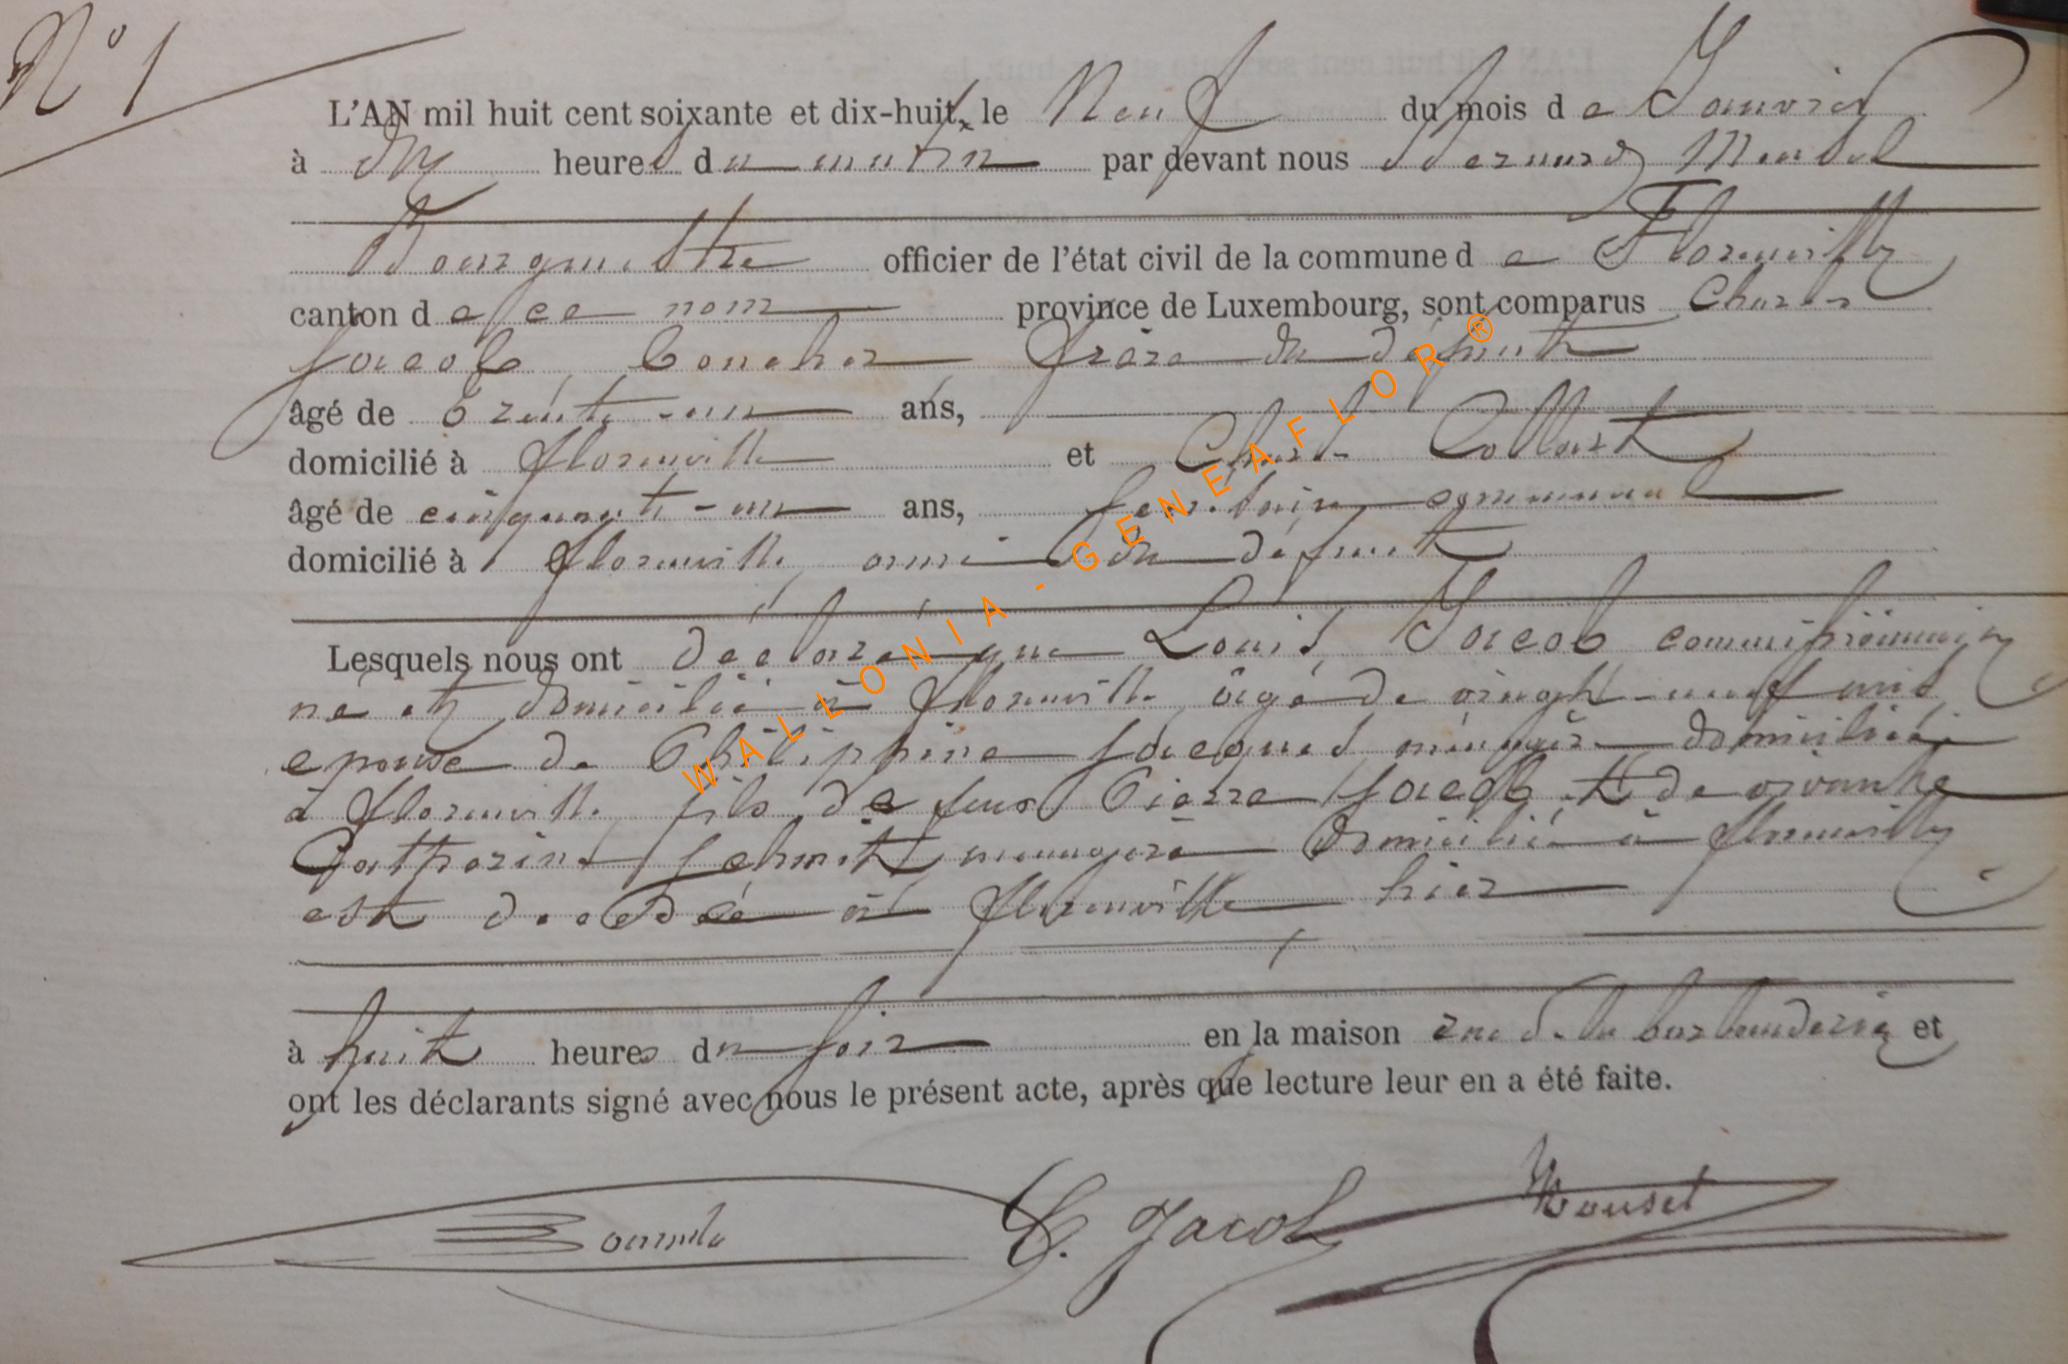 N° 1
L'AN mil huit cent soixante et dix-huit, le Neuf du mois de Janvier
à dix heures du matin par devant nous Bernard
Bourgmestre officier de l'état civil de la commune de Florenville
canton de ce nom province de Luxembourg, sont comparus Charles
Jacob Boucher frère du défunt
âgé de trente-un ans,
domicilié à Florenville et Charles Collart
âgé de cinquante-un ans, communal
domicilié à Florenville, ami du défunt
Lesquels nous ont déclaré que Louis Jacob commissionnaire
né et domicilié à Florenville âgé de vingt-neuf ans
epouse de Philippine Jacques ménagère domiciliée
à Florenville fils de feus Pierre Jacob et de vivante
Catherine Schmit menagère domiciliée à Florenville
est decedé à Florenville hier
à huit heures du soir en la maison rue de la et
ont les déclarants signé avec nous le présent acte, après que lecture leur en a été faite.
C. Jacob
WALLONIA-GENEAFLOR®